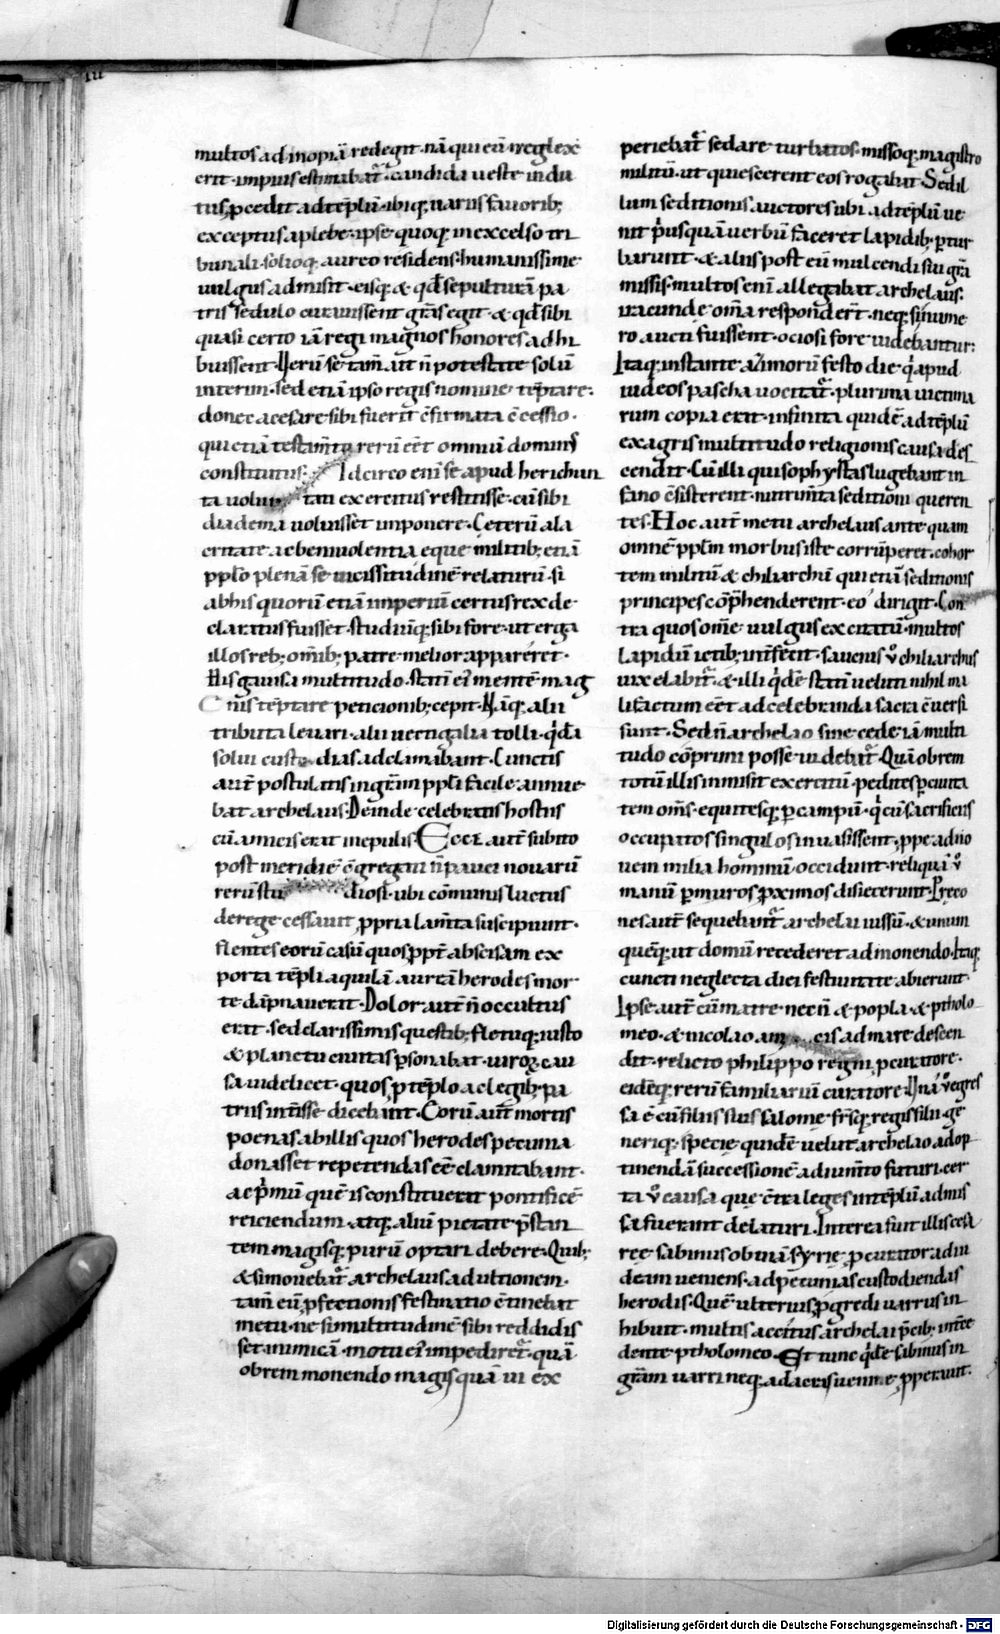 multos ad inopiā redegit· nā qui eū neglexe
erit· impius estimabat̄· candida ueste indu
tus p̱cedit ad tēplū· ibiq; uariis fauorib;
exceptus a plebe· ipse quoq; in excelso tri
bunali· solioq; aureo residens· humanissime
uulgus admisit· eisq; & qđ sepulturā pa
tris sedulo curauissent grās egit· & qđ sibi
quasi certo iā regi magnos honores adhi
buissent· Verū se tam̄ ait n̄ potestate solū
interim· sed etiā ipso regis nomine tēptare·
donec a cesare sibi fuerit c̄firmata c̄cessio·
qui etiā testam̄to rerū eēt omniū dominus
constitutus· Idcirco enī se apud herichun
ta uolun tati exercitus restitisse· cū sibi
diadema uoluisset imponere· Ceterū ala
critate ac beniuolentia eque militib; etiā
pplo plenā se uicissitudinē relaturū· si
ab his quorū etiā imperiū certus rex de
claratus fuisset· studiūq; sibi fore· ut erga
illos reb; om̄ib; patre melior appareret·
His gauisa multitudo· statī ei' mentē mag
nis tēptare peticionib; cepit· Nāq; alii
tributa leuari· alii uectigalia tolli· qđā
solui custodias adclamabant· Cunctis
aut̄ postulatis in grām ppli facile annue
bat archelaus· Deinde celebratis hostiis
cū amicis erat in epulis· Ecce aut̄ subito
post meridiē c̄gregati n̄ pauci nouarū
rerū stu diosi· ubi cōmunis luctus
de rege cessauit p̱pria lam̄ta suscipiunt·
flentes eorū casū quos p̱pt̄ abscisam ex
porta tēpli aquilā aurēā herodes mor
te dāpnauerat· Dolor aut̄ n̄ occultus
erat· sed clarissimis questib; fletuq; iusto
& planctu ciuitas p̱sonabat· uiroꝝ cau
sa uidelicet· quos p̱ tēplo ac legib; pa
triis int̄isse dicebant· Eorū aut̄ mortis
poenas ab illis quos herodes pecunia
donasset repetendas eē clamitabant·
ac p̄mū quē is constituerat pontificē
reiciendum· atq; aliū pietate p̄stan
tem magisq; purū optari debere· Quib;
& si mouebat̄ archelaus ad ultionem·
tam̄ eū p̱fectionis festinatio c̄tinebat
metu· ne si multitudinē sibi reddidis
set inimicā· motu ei' impediret̄· quā
obrem monendo magis quā ui ex
periebat̄ sedare turbatos· missoq; magistro
militū· ut quiescerent eos rogabat· Sed il
lum seditionis auctores ubi ad tēplū ue
nit p̄usquā uerbū faceret lapidib; p̱tur
barunt· & aliis post eū mulcendi sui grā
missis· multos enī allegabat archelaus·
iracunde om̄a respondert̄· neq; si nume
ro aucti fuissent· ociosi fore uidebantur·
Itaq; instante azimorū festo die q' apud
iudeos pascha uocitat̄· plurima uictima
rum copia erat· infinita quidē ad tēplū
ex agris multitudo religionis causa des
cendit· Cū illi qui sophystas lugebant in
fano c̄sisterent· nutrim̄ta seditioni queren
tes· Hoc aut̄ metu archelaus ante quam
omnē pplm morbus iste corrūperet· cohor
tem militū & chiliarchū qui etiā seditionis
principes cōp̄henderent· eo dirigit· Con
tra quos om̄e uulgus excitatū· multos
lapidū ictib; int̄fecit· saucius v̊ chiliarchus
uix elabit̄· & illi q'dē statī ueluti nihil ma
li factum eēt ad celebranda sacra c̄uersi
sunt· Sed n̄ archelao sine cede iā multi
tudo cōprimi posse uidebat̄· Quā obrem
totū illis inmisit exercitū· pedites p̱ ciuita
tem om̄s· equitesq; p̱ campū· q' cū sacrificiis
occupatos singulos inuasissent· p̱pe ad no
uem milia hominū occidunt· reliquā v̊
manū p̱ muros p̱ximos disiecerunt· Preco
nes aut̄ sequebant̄ archelai iussū· & unum
quēq; ut domū recederet admonendo· Itaq;
cuncti neglecta diei festiuitate abierunt·
Ipse aut̄ cū matre necn̄ & popla & ptholo
meo· & nicolao am cis ad mare descen
dit· relicto philippo regni p̱curatore·
eidēq; rerū familiariū curatore· Vna v̊ egres
sa ē cū filiis suis salome· fr̄sq; regis filii ge
neriq; specie quidē uelut archelao adop
tinendā successionē adium̄to futuri· cer
ta v̊ causa que c̄tra leges in tēplū admis
sa fuerunt delaturi· Interea fuit illis cesa
ree sabinus obuiā syrie p̱curator ad iu
deam ueniens· ad pecunias custodiendas
herodis· Quē ulterius p̱gredi uarrus in
hibuit· multis accitus archelai p̄cib; int̄ce
dente ptholomeo· Et tunc q'dē sabinus in
grām uarri neq; ad acris uenire p̱perauit·
Digitalisierung gefördert durch die Deutsche Forschungsgemeinschaft - DFG